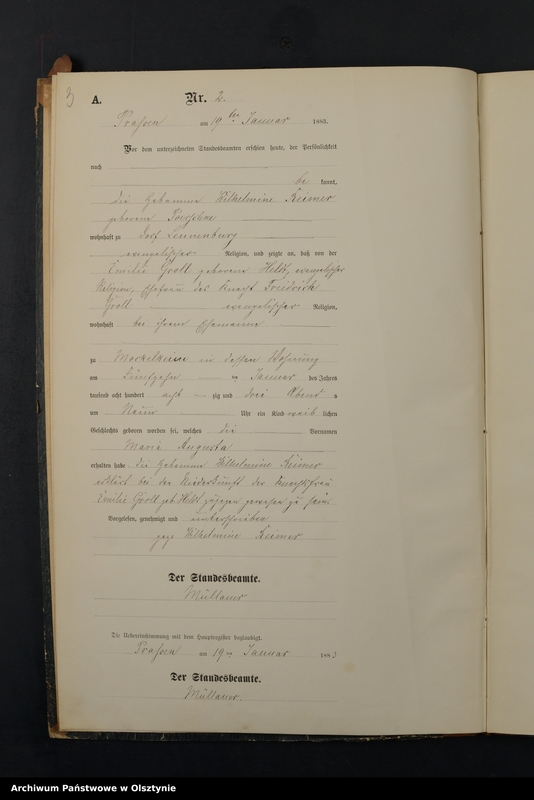 3
A. Nr. 2.
Prassen am 19 ten Januar 1883.
Vor dem unterzeichneten Standesbeamten erschien heute, der Persönlichkeit
nach
be kannt,
die Hebamme Wilhelmine Keimer
geborene
wohnhaft zu Dorf Leunenburg
evangelischer Religion, und zeigte an, daß von der
Emilie Groll geborene Heldt, evangelischer
Religion, Ehefrau des Knecht Friedrich
Groll evangelischer Religion,
wohnhaft bei ihrem Ehemanne
zu in dessen Wohnung
am fünfzehn ten Januar des Jahres
tausend acht hundert acht zig und drei Abend s
um Neun Uhr ein Kind weib lichen
Geschlechts geboren worden sei, welches die Vornamen
Marie Augusta
erhalten habe. die Hebamme Wilhelmine Keimer
erklärt bei der Niederkunft der Knechtsfrau
Emilie Groll geb. Heldt zugegen gewesen zu sein.
Vorgelesen, genehmigt und unterschrieben
gez. Wilhelmine Keimer
Der Standesbeamte.
Müllauer
Die Uebereinstimmung mit dem Hauptregister beglaubigt.
Prassen am 19 ten Januar 1883
Der Standesbeamte.
Müllauer.
Archiwum Państwowe w Olsztynie